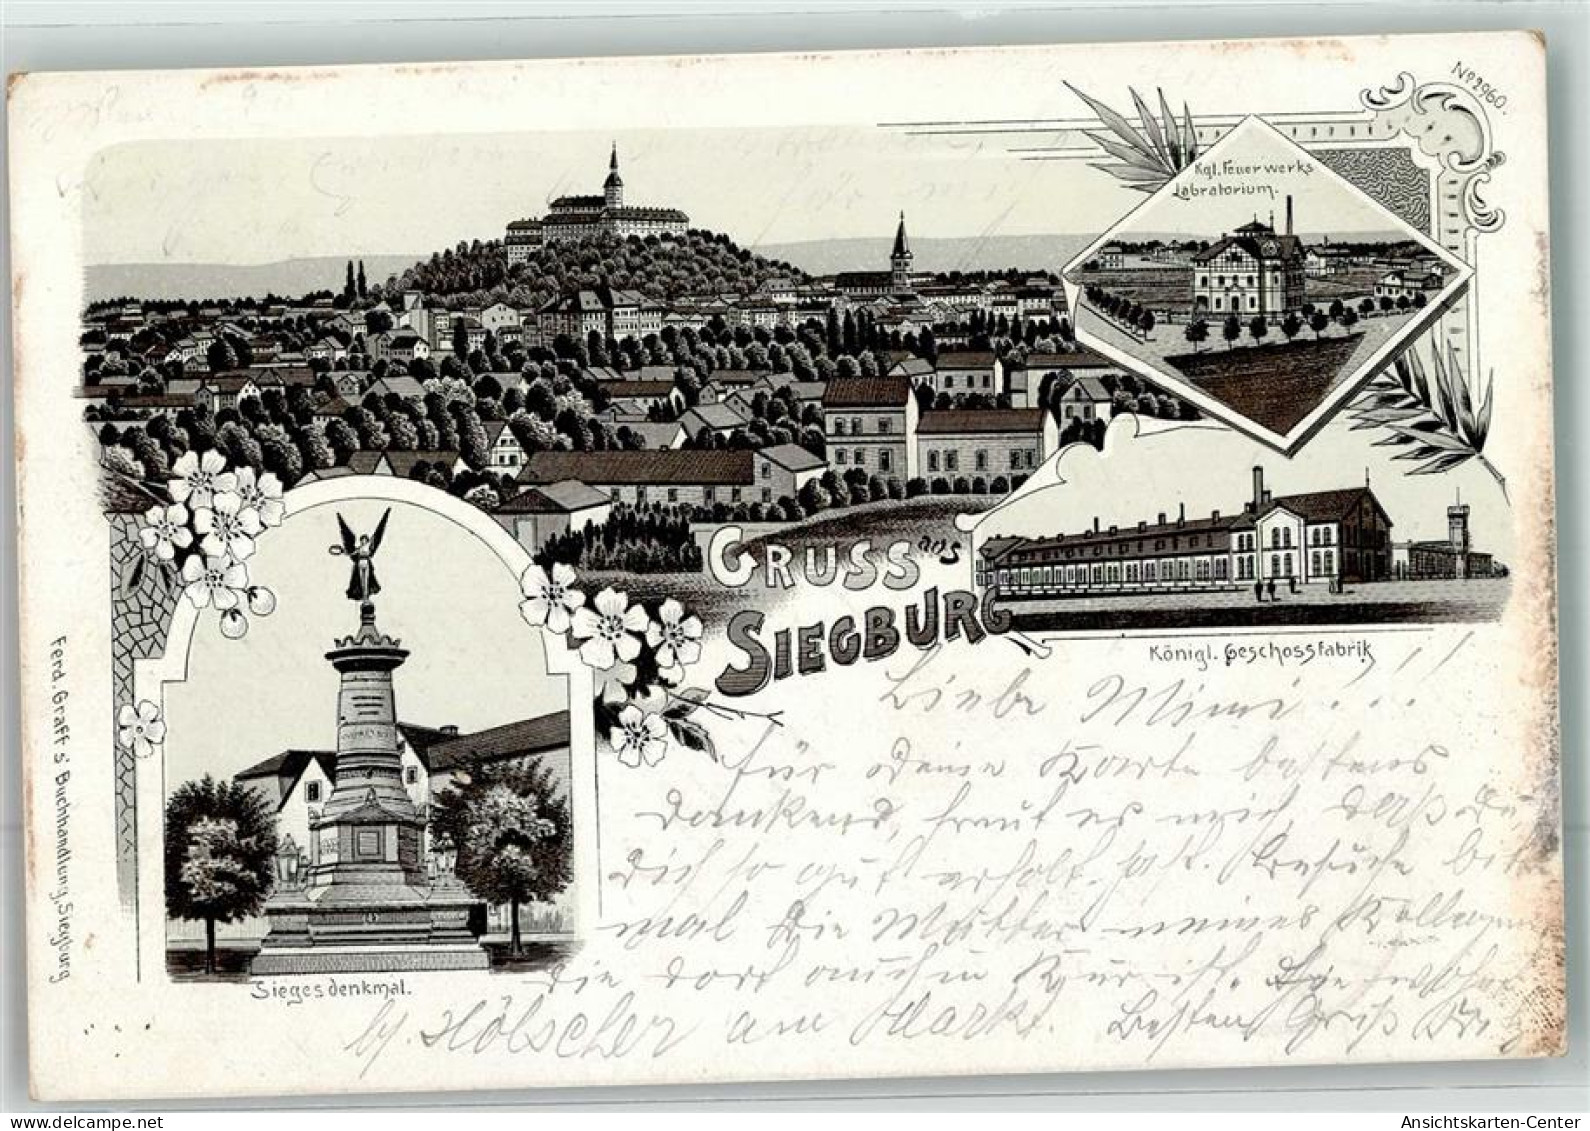 No 2960.
Kgl. Feuerwerks
Labratorium.
GRUSS aus
SIEGBURG
Königl. Geschossfabrik
Siegesdenkmal.
Ferd. Graff's Buchhandlung, Siegburg
Liebe Mimi...!!
für deine Karte bestens
dankend, freut es mich, daß Du
Dich so gut erholt hast. Besuche bitte
mal die Mutter meines Kollegen
die dort auch in Kur ist. Sie wohnt
bj. Hölscher am Markt. Besten Gruß
delcampe.net
Ansichtskarten-Center